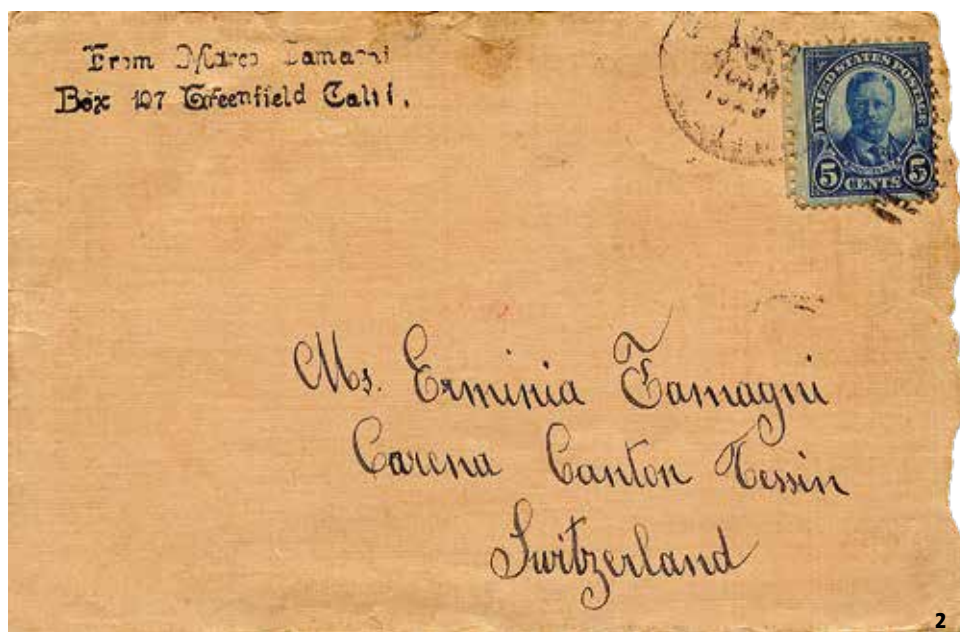 From Marco
Box 197 Greenfield Calif.
10 AM
UNITED STATES POSTAGE
5 CENTS 5
Ms. Erminia Tamagni
Carena Canton Tessin
Switzerland
2